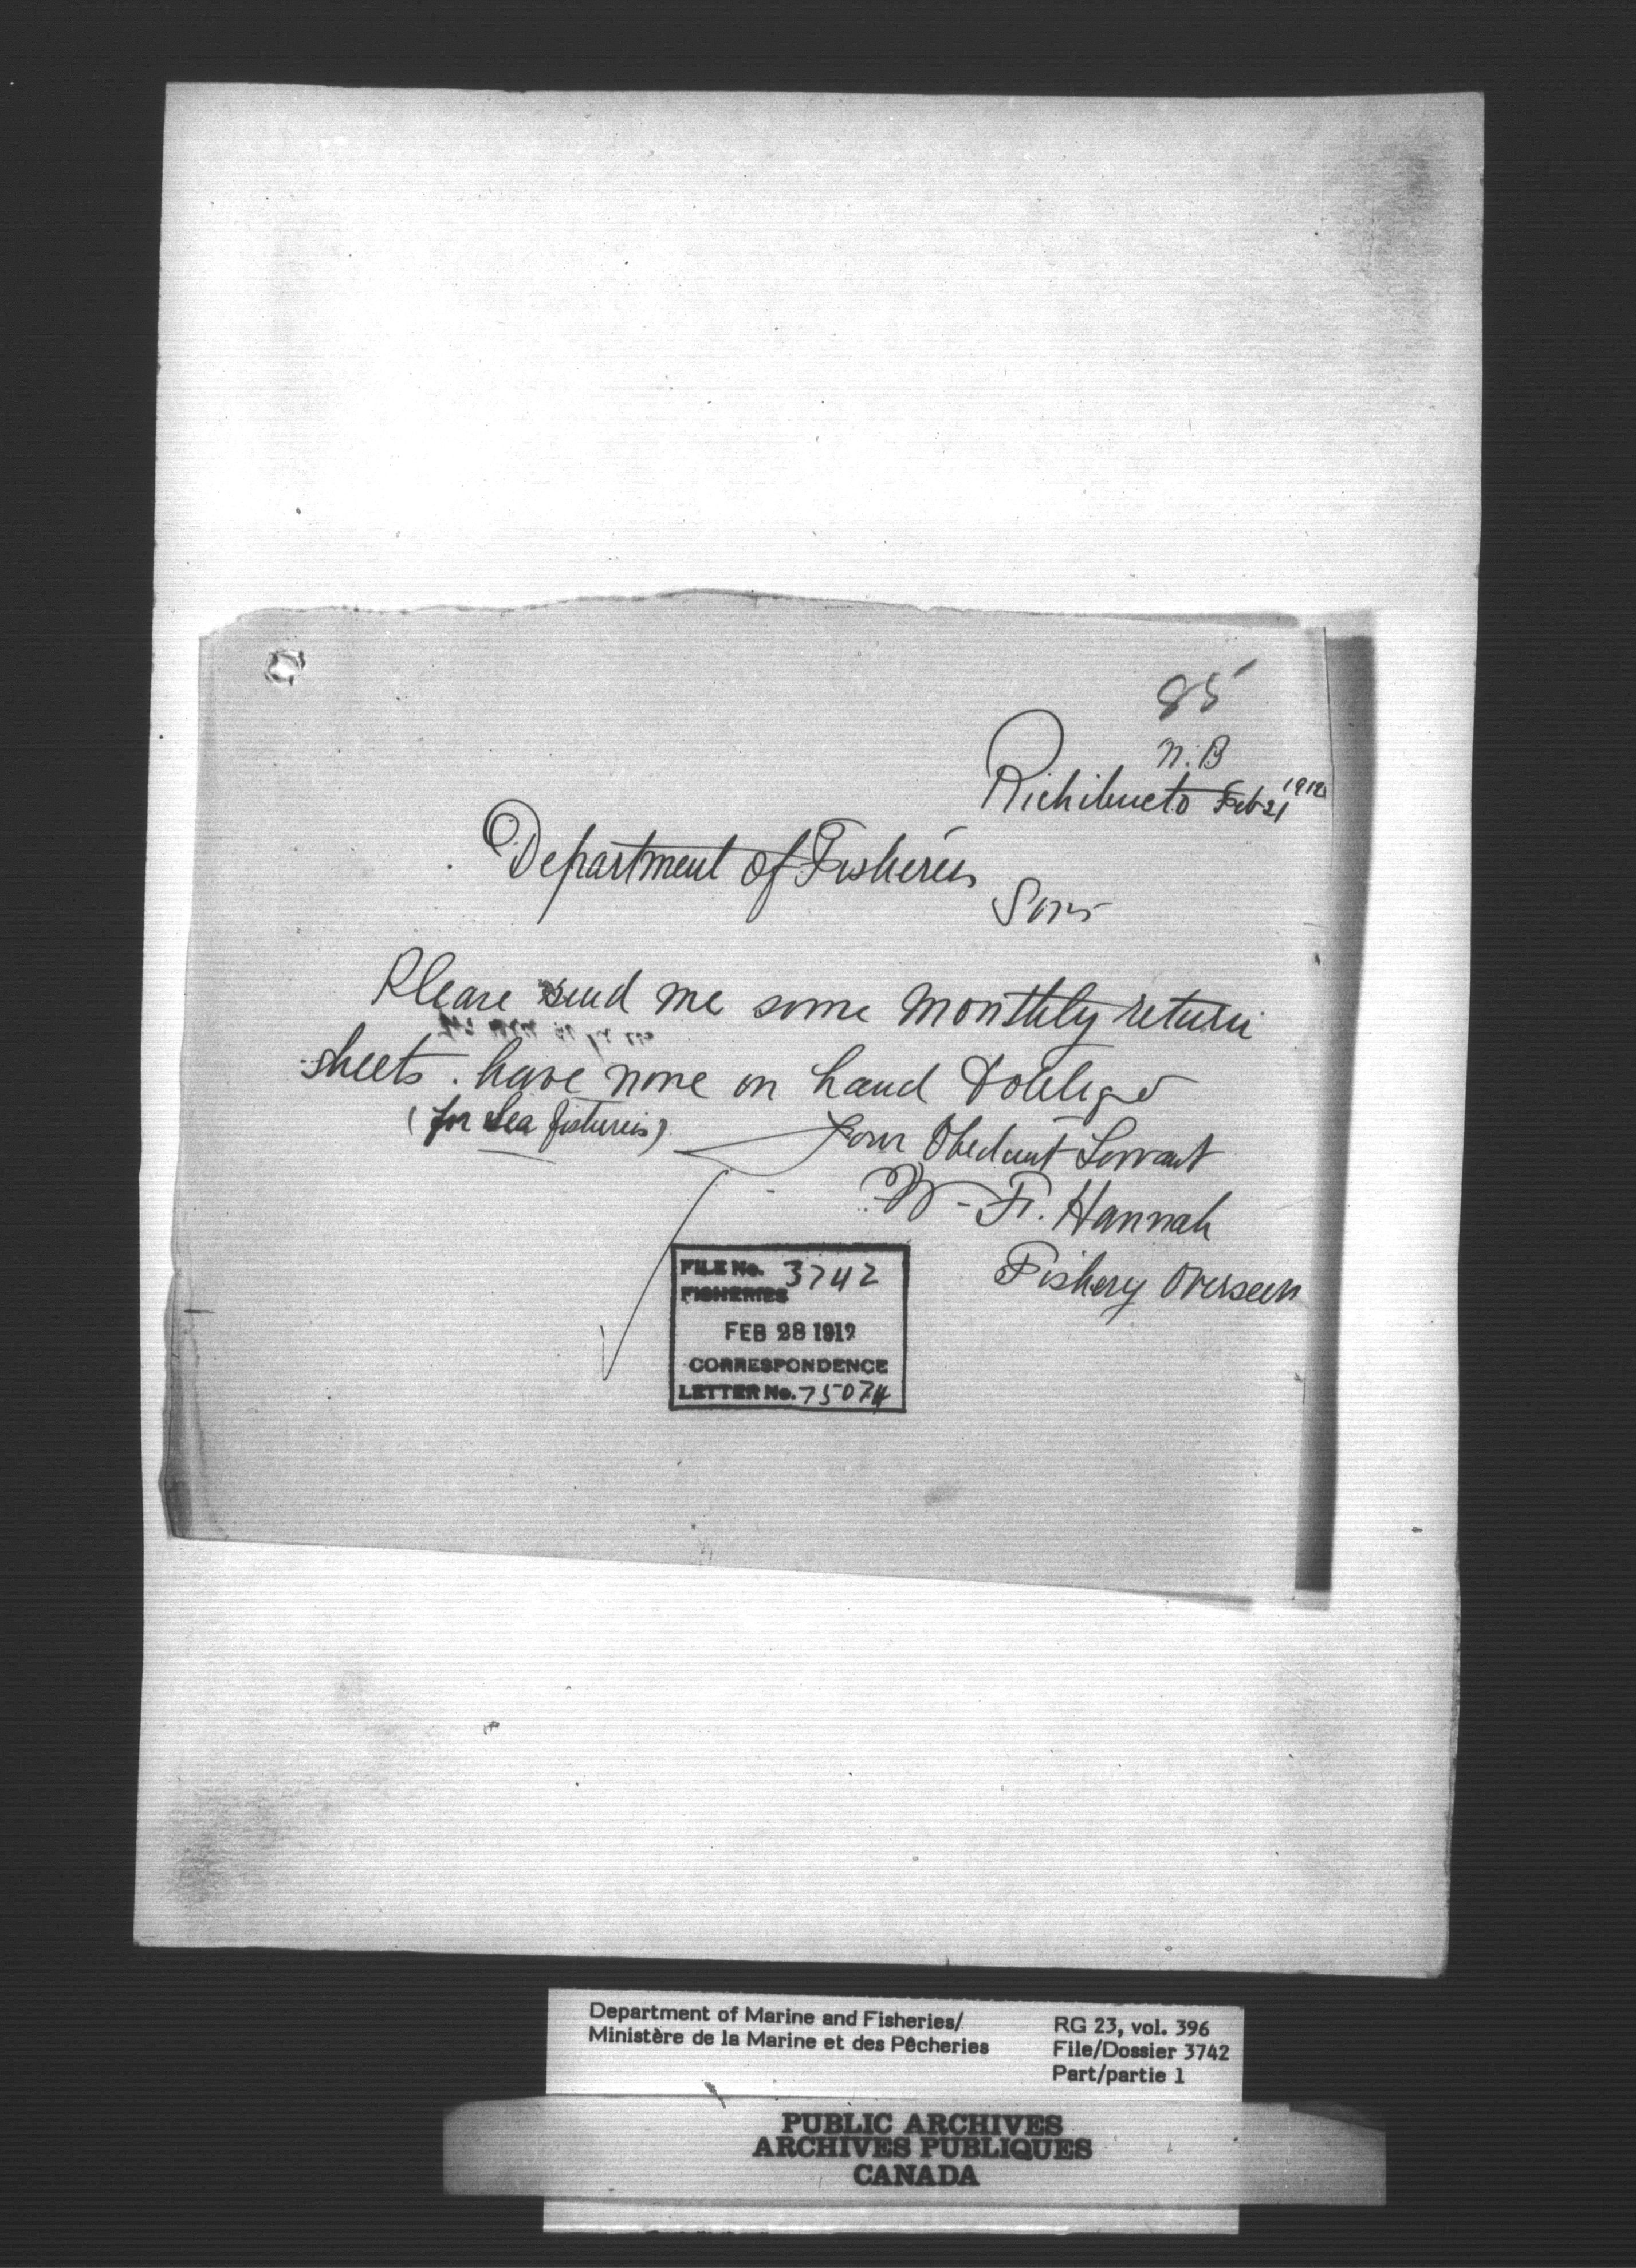 85
N.B
Richibucto Feb 21 1912
Department of Fisheries
Sirs
Please send me some monthly return
sheets. have none on hand & oblige
(for Sea fisheries)
Your Obedient Servant
W. F. Hannah
Fishery Overseer
FILE No. 3742
FISHERIES
FEB 28 1912
CORRESPONDENCE
LETTER No. 75074
Department of Marine and Fisheries/
Ministère de la Marine et des Pêcheries
RG 23, vol. 396
File/Dossier 3742
Part/partie 1
PUBLIC ARCHIVES
ARCHIVES PUBLIQUES
CANADA